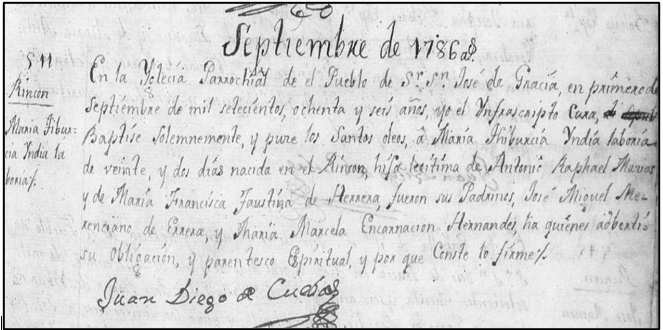 Septiembre de 1786 as.
511
Rincon
Maria Tibur-
cia Yndia la
boria
En la Yglecia Parrochial de el Pueblo de Sr. Sn. José de Gracia, en primero de
Septiembre de mil setecientos, ochenta y seis años, yo el Ynfrascripto Cura,
Baptise Solemnemente, y puse los Santos oleos, â Maria Thiburcia Yndia laboria
de veinte, y dos dias nacida en el Rincon, hija legitima de Antonio Raphael Macias
y de Maria Francisca Faustina de Herrera, fueron sus Padrinos, José Miguel
renciano, de Errera, y Maria Marcela Encarnacion Hernandes, ha quienes adberti
su Obligacion, y parentesco Espiritual, y por que Conste lo firmé
Juan Diego de Cuebas